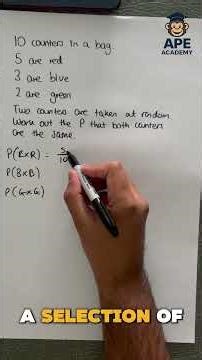 APE
ACADEMY
10 counters in a bag.
5 are red
3 are blue
2 are green
Two counters are taken at random
Work out the P that both counters
are the same.
P(R×R) = 5/10
P(B×B)
P(G×G)
A SELECTION OF